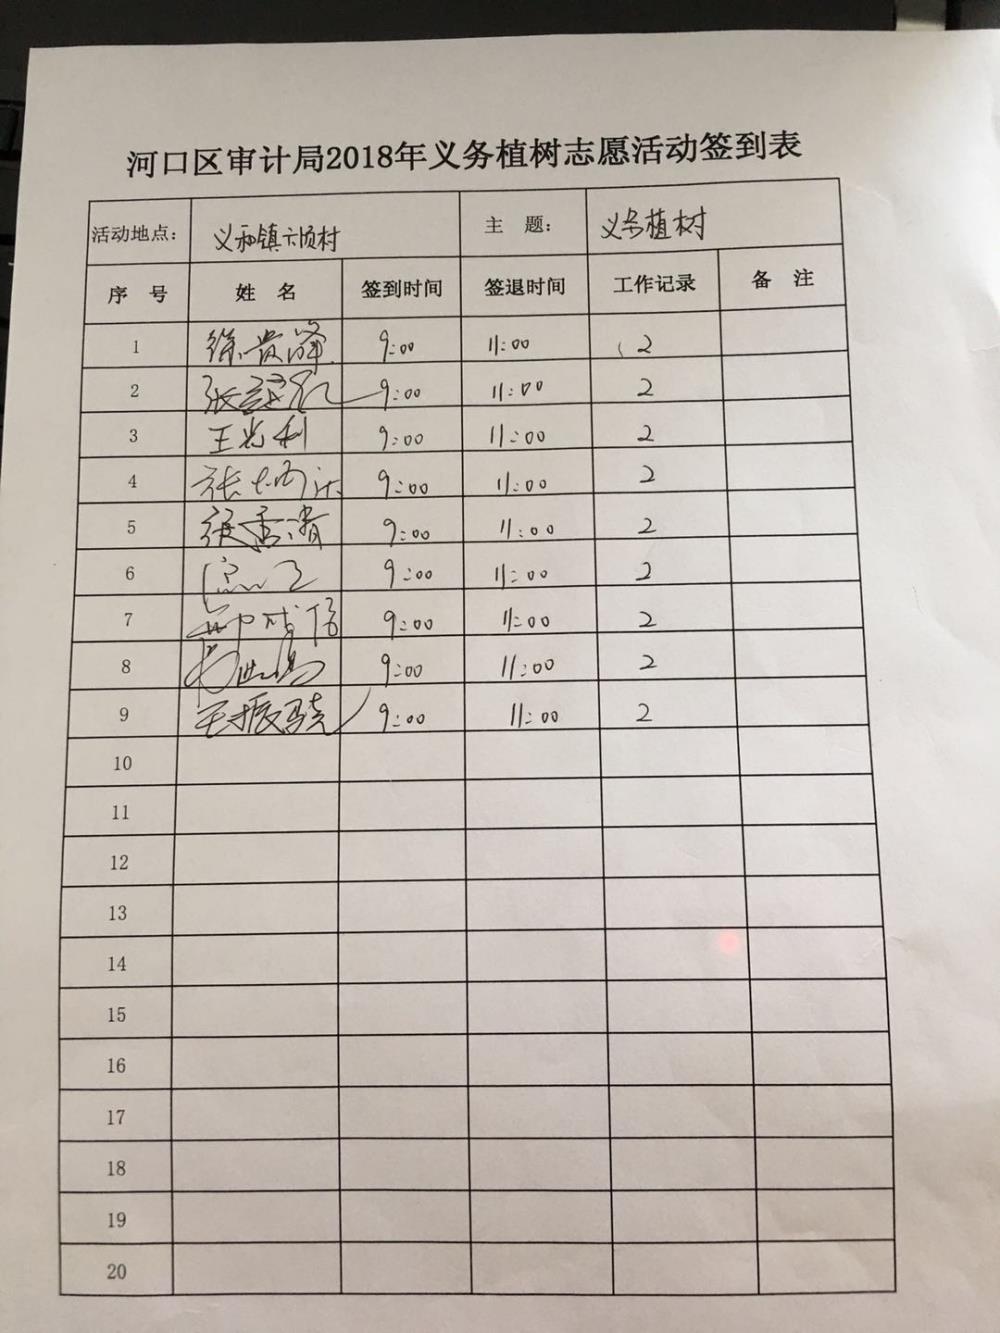 河口区审计局2018年义务植树志愿活动签到表
活动地点: 义和镇六顷村 主 题: 义务植树
序 号 姓 名 签到时间 签退时间 工作记录 备 注
1 徐贵峰 9:00 11:00 2
2 9:00 11:00 2
3 王光利 9:00 11:00 2
4 9:00 11:00 2
5 张秀清 9:00 11:00 2
6 9:00 11:00 2
7 9:00 11:00 2
8 9:00 11:00 2
9 王振骁 9:00 11:00 2
10
11
12
13
14
15
16
17
18
19
20